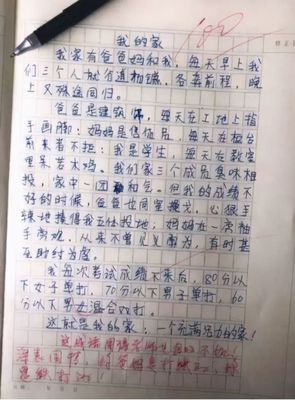 100
我的家
我家有爸爸妈和我，每天早上我
们三个人就分道扬镳，各奔前程，晚
上又殊途同归。
爸爸是建筑师，每天在工地上指
手画脚；妈妈是售货员，每天在柜台
前来者不拒；我是学生，每天在教室
里呆若木鸡。我们家三个成员臭味相
投，家中一团和气。但我的成绩不
好的时候，爸爸也同室操戈，心狠手
辣地揍得我五体投地；妈妈在一旁袖
手旁观，从来不曾见义勇为，有时甚
至助纣为虐。
我每次考试成绩下来后，80分以
下女子单打，70分以下男子单打，60
分以下男女混合双打。
这就是我的家，一个充满活力的家！